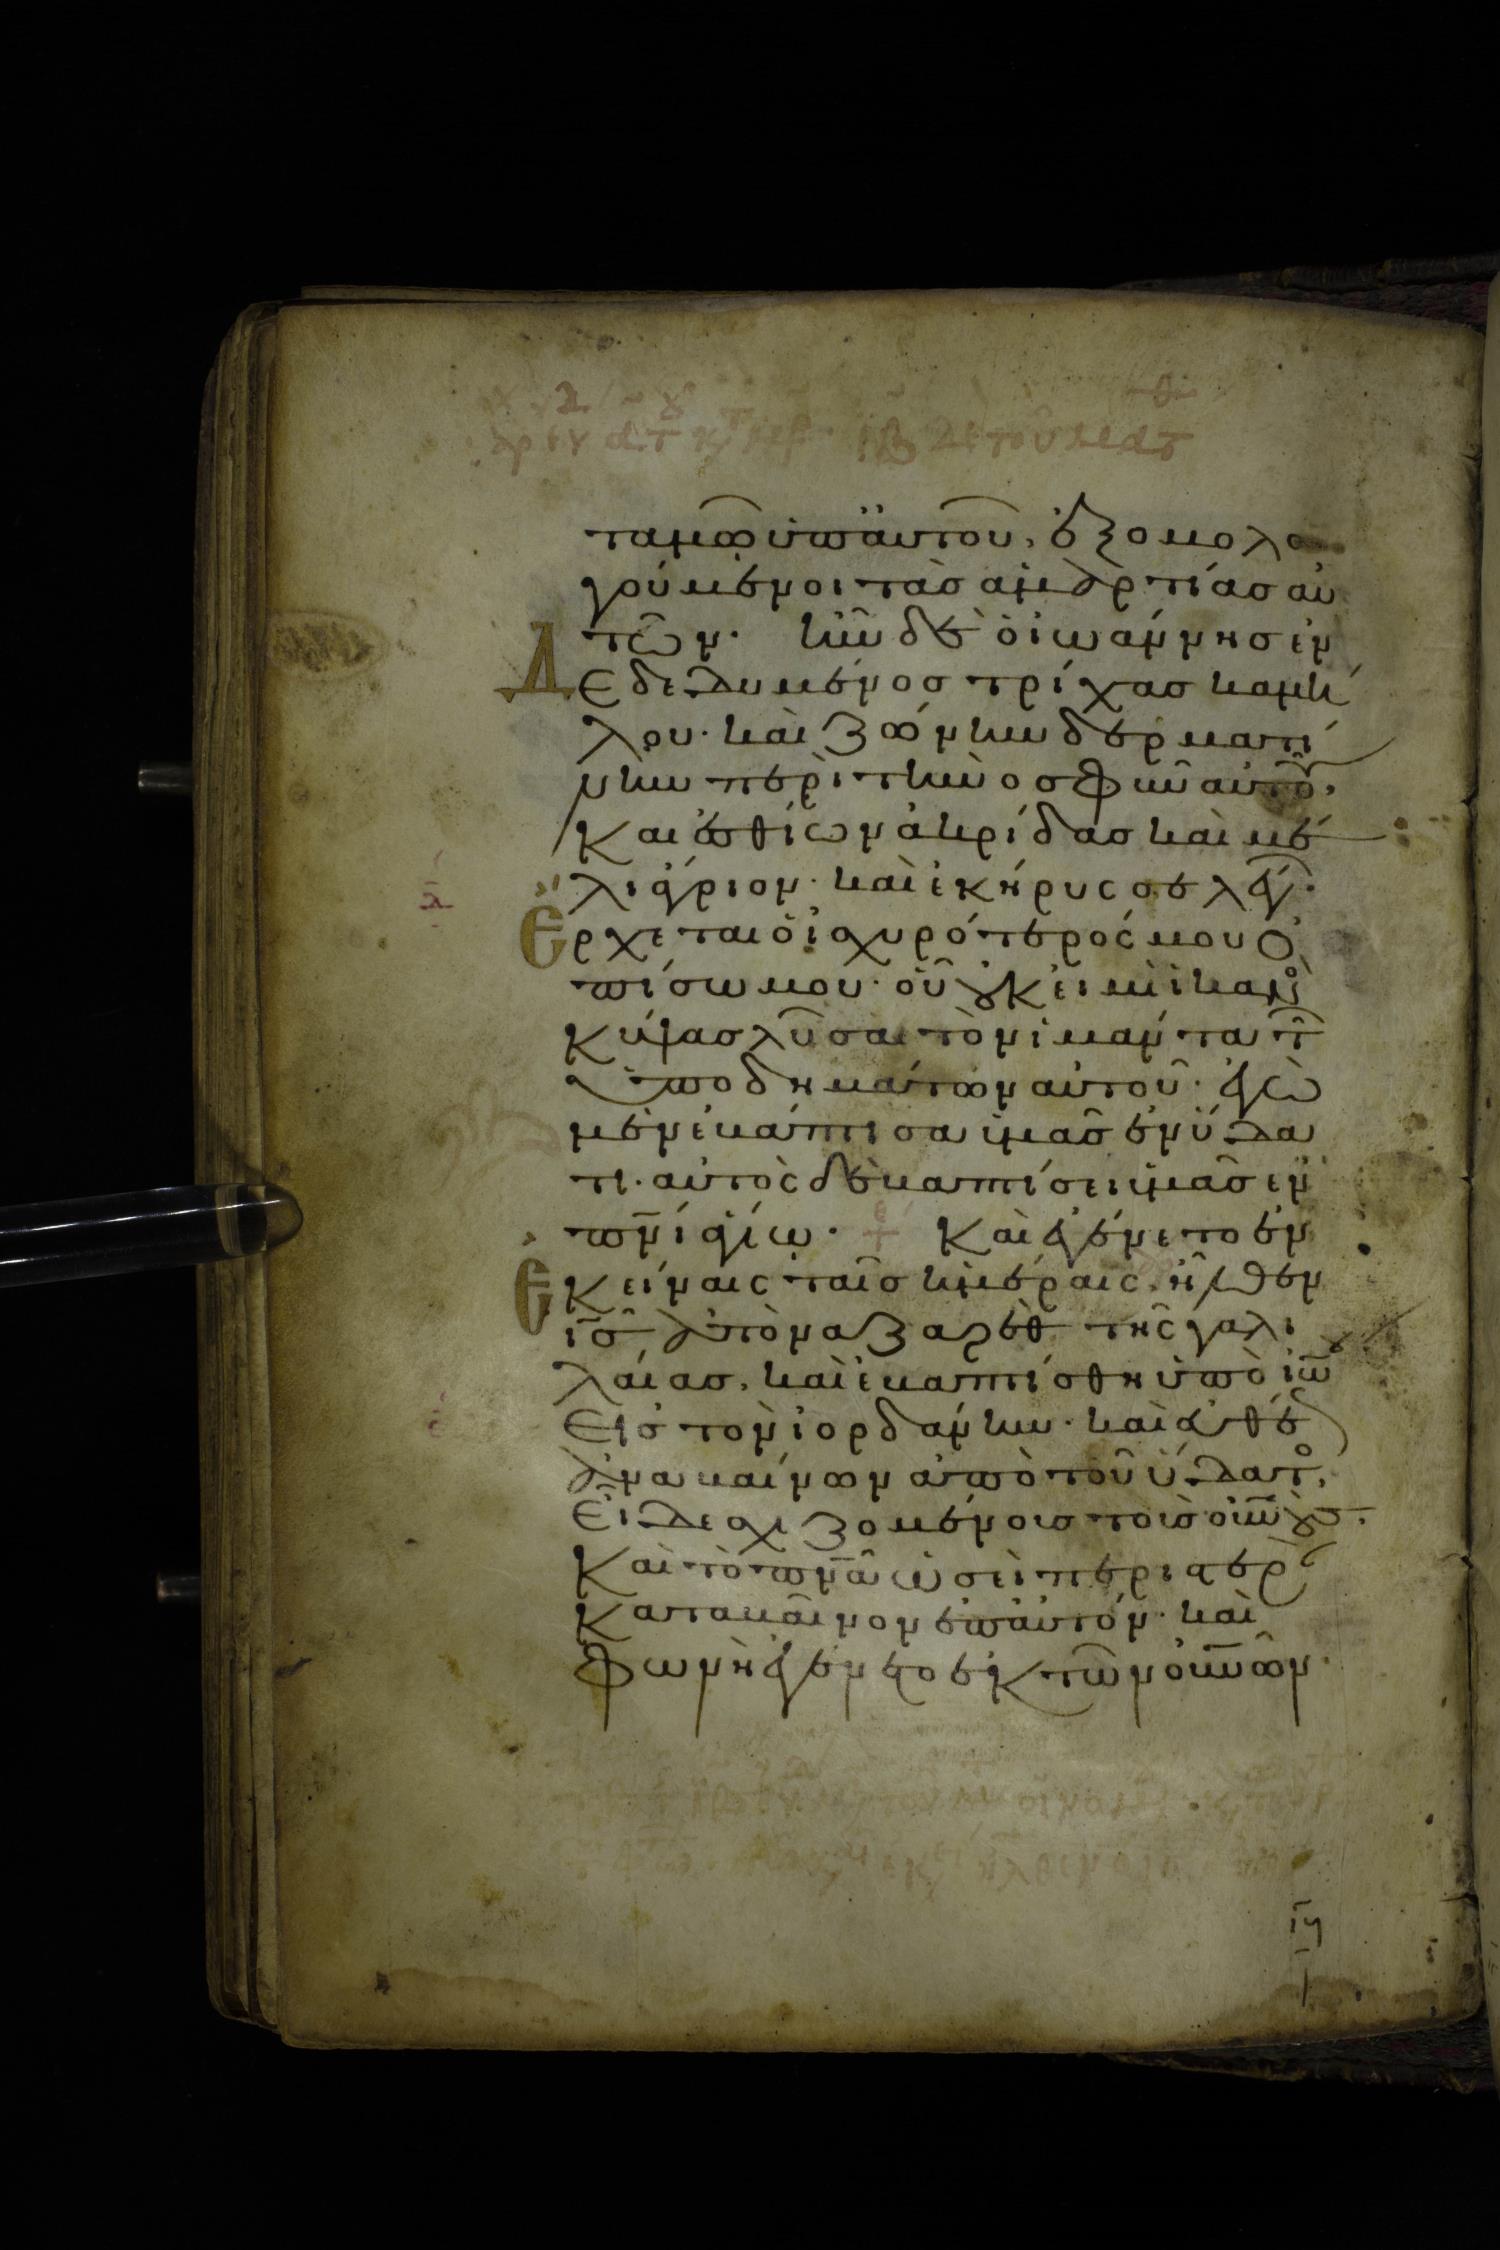 ταμῶ ὑπ' αὐτοῦ, ἐξομολο
γούμενοι τὰς ἁμαρτίας αὐ
τῶν. ἦν δὲ ὁ ἰωάννης ἐν
Δεδυμένος τρίχας καμή
λου. καὶ ζώνην δερματί
νην περὶ τὴν ὀσφῦν αὐτοῦ,
Καὶ ἐσθίων ἀκρίδας καὶ μέ
λι ἄγριον. καὶ ἐκήρυσσε λέγ.
Ἔρχεται ὁ ἰσχυρότερός μου ὀ
πίσω μου. οὗ οὐκ εἰμὶ ἱκανὸς
κύψας λῦσαι τὸν ἱμάντα τῶν
ὑποδημάτων αὐτοῦ. ἐγὼ
μὲν ἐβάπτισα ὑμᾶς ἐν ὕδα
τι. αὐτὸς δὲ βαπτίσει ὑμᾶς ἐν
πνι ἁγίω. Καὶ ἐγένετο ἐν
Ἐκείναις ταῖς ἡμέραις, ἦλθεν
ις ἀπὸ ναζαρὲθ τῆς γαλι
λαίας, καὶ ἐβαπτίσθη ὑπὸ ἰω
εἰς τὸν ἰορδάνην. καὶ εὐθέ
ἀναβαίνων ἀπὸ τοῦ ὕδατος,
Εἶδε σχιζομένους τοὺς οὐνους.
Καὶ τὸ πνα ὡσεὶ περιστερὰ
καταβαῖνον ἐπ' αὐτόν. καὶ
φωνὴ ἐγένετο ἐκ τῶν οὐνῶν.
ιγ